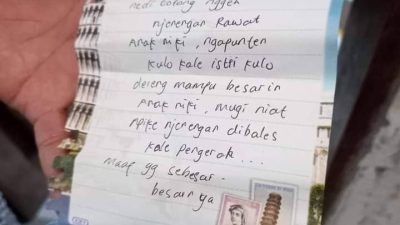 njenengan Rawat
Anak niki, ngapunten
kulo kale istri kulo
dereng mampu besarin
Anak niki, mugi niat
Apike njenengan dibales
kale pengeran...
maaf yg sebesar-
besarnya